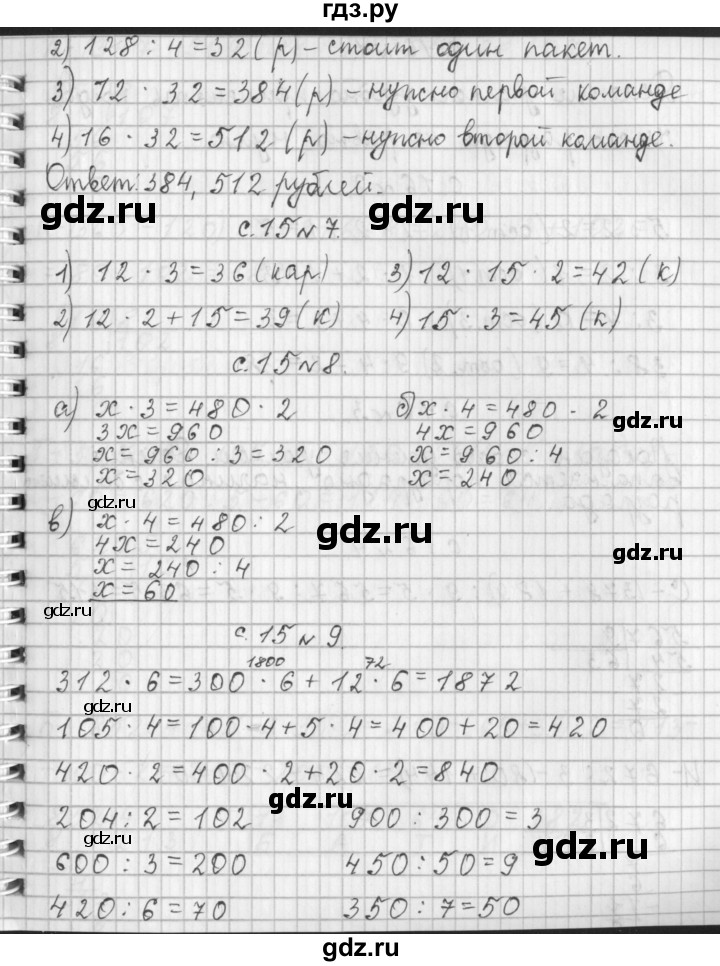 гдз.ру
2) 128 : 4 = 32 (р) – стоит один пакет.
3) 12 · 32 = 384 (р) – нужно первой команде
4) 16 · 32 = 512 (р) – нужно второй команде.
Ответ: 384, 512 рублей.
gdz.ru gdz.ru
с. 15 № 7.
1) 12 · 3 = 36 (кар) 3) 12 · 15 · 2 = 42 (к)
2) 12 · 2 + 15 = 39 (к) 4) 15 · 3 = 45 (к)
с. 15 № 8.
а) x · 3 = 480 · 2 б) x · 4 = 480 · 2
gdz.ru
3x = 960 4x = 960
x = 960 : 3 = 320 x = 960 : 4
x = 320 x = 240
gdz.ru
в) x · 4 = 480 : 2
gdz.ru
4x = 240
gdz.ru
x = 240 : 4
x = 60
gdz.ru
с. 15 № 9.
1800 72
312 · 6 = 300 · 6 + 12 · 6 = 1872
gdz.ru
gdz.ru
105 · 4 = 100 · 4 + 5 · 4 = 400 + 20 = 420
420 · 2 = 400 · 2 + 20 · 2 = 840
gdz.ru
204 : 2 = 102 900 : 300 = 3
gdz.ru gdz.ru
600 : 3 = 200 450 : 50 = 9
420 : 6 = 70 350 : 7 = 50
gdz.ru